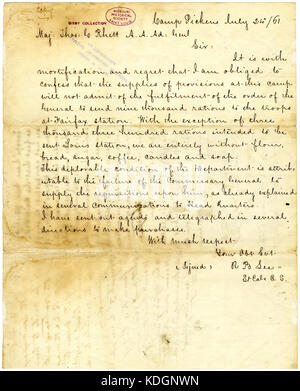 BIXBY COLLECTION
MISSOURI HISTORICAL SOCIETY
Camp Pickens July 24th/61
Maj. Thos. G. Rhett A. A. Ad. Genl
Sir,
It is with
mortification, and regret that I am obliged to
confess that the supplies of provisions at this camp
will not admit of the fulfilment of the order of the
General to send nine thousand rations to the troops
at Fairfax Station. With the exception of three
thousand three hundred rations intended to be
sent Loins Station, we are entirely without flour,
bread, sugar, coffee, candles and soap.
This deplorable condition of the Department is attrib-
utable to the failure of the Commissary General to
supply the requisitions upon him, as already explained
in several communications to Head Quarters.
I have sent out agents and telegraphed in several
directions to make purchases.
With much respect
Your Obt Svt.
(Signed) R. B. Lee
Lt Col. C. S.
alamy
Image ID: KDGNWN
www.alamy.com